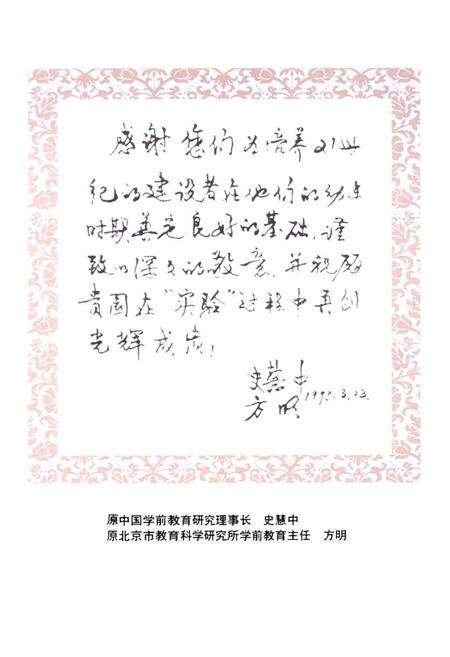 感谢您们为培养21世
纪的建设者在他们的幼生
时期奠定良好的基础，谨
致以深久的敬意，并祝愿
贵园在“实验”过程中再创
光辉成绩！
史慧中
方明 3.23.
原中国学前教育研究理事长 史慧中
原北京市教育科学研究所学前教育主任 方明